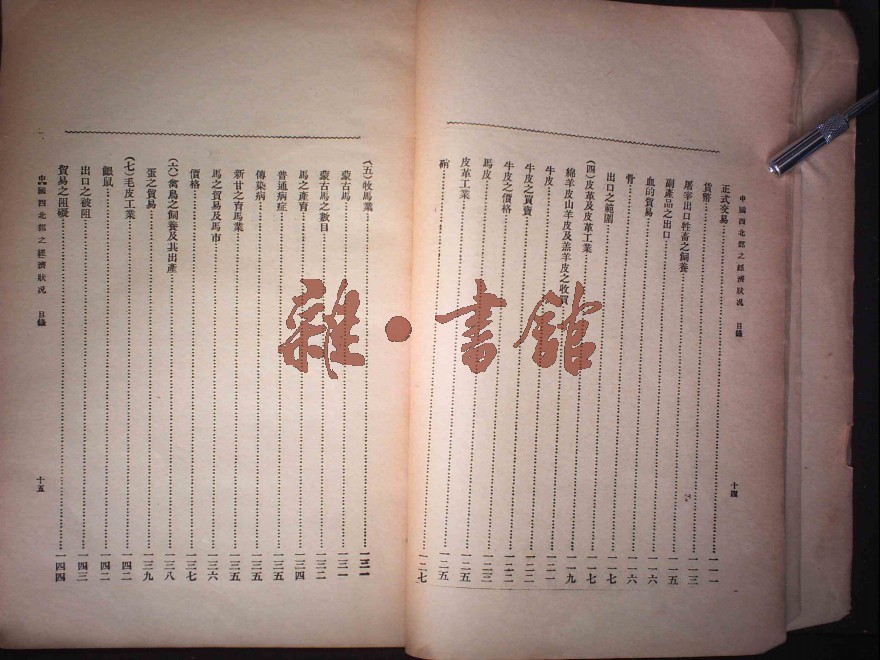 中國西北部之經濟狀況 目錄 十四
正式交易⋯⋯一一一
貨幣⋯⋯一一三
屠宰出口牲畜之飼養⋯⋯一一五
副產品之出口⋯⋯一一六
血的貿易⋯⋯一一六
骨⋯⋯一一七
出口之範圍⋯⋯一一七
(四)皮革及皮革工業⋯⋯一一九
綿羊皮山羊皮及羔羊皮之收買⋯⋯一二一
牛皮⋯⋯一二二
牛皮之買賣⋯⋯一二二
牛皮之價格⋯⋯一二三
馬皮⋯⋯一二五
皮革工業⋯⋯一二五
硝⋯⋯一二七
(五)牧馬業⋯⋯一三一
蒙古馬⋯⋯一三一
蒙古馬之數目⋯⋯一三二
馬之產育⋯⋯一三四
普通病症⋯⋯一三五
傳染病⋯⋯一三五
新甘之育馬業⋯⋯一三五
馬之貿易及馬市⋯⋯一三六
價格⋯⋯一三七
(六)禽鳥之飼養及其出產⋯⋯一三八
蛋之貿易⋯⋯一三九
(七)毛皮工業⋯⋯一四二
鼹鼠⋯⋯一四二
出口之被阻⋯⋯一四三
貿易之阻礙⋯⋯一四四
中國西北部之經濟狀況 目錄 十五
雜·書館